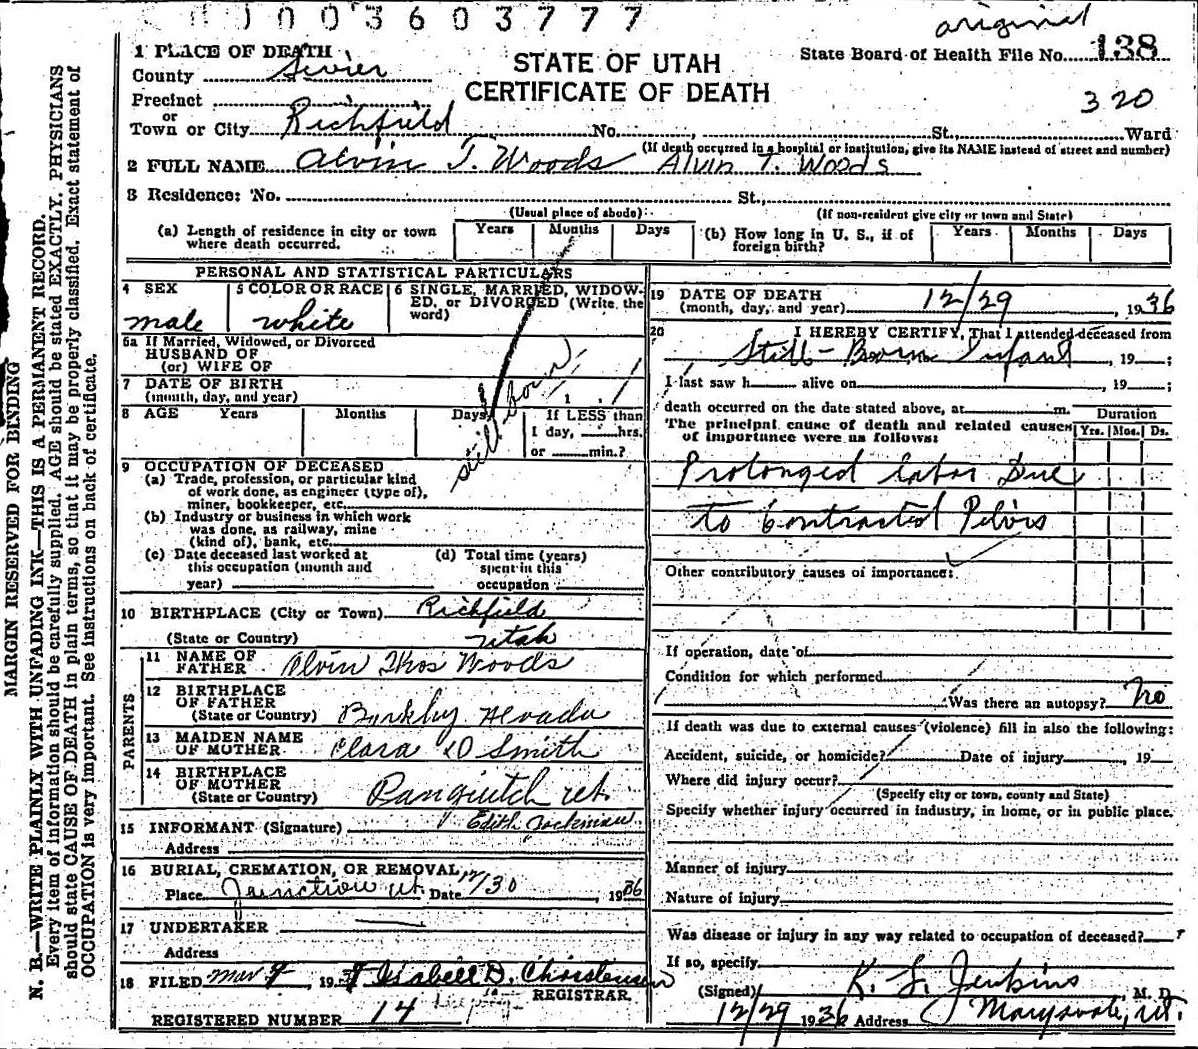 003603777
original
1 PLACE OF DEATH
County Sevier
STATE OF UTAH
CERTIFICATE OF DEATH
State Board of Health File No. 138
320
Precinct
or
Town or City Richfield No. , St., Ward
(If death occurred in a hospital or institution, give its NAME instead of street and number)
2 FULL NAME Alvin T. Woods Alvin T. Woods
3 Residence: No. St.,
(Usual place of abode) (If non-resident give city or town and State)
(a) Length of residence in city or town where death occurred. Years Months Days
(b) How long in U. S., if of foreign birth? Years Months Days
PERSONAL AND STATISTICAL PARTICULARS
4 SEX
male
5 COLOR OR RACE
white
6 SINGLE, MARRIED, WIDOW-
ED, or DIVORCED (Write the
word)
6a If Married, Widowed, or Divorced
HUSBAND OF
(or) WIFE OF
7 DATE OF BIRTH
(month, day, and year) 1
still born
8 AGE Years Months Days
If LESS than
1 day, hrs.
or min.?
9 OCCUPATION OF DECEASED
(a) Trade, profession, or particular kind
of work done, as engineer (type of),
miner, bookkeeper, etc.
(b) Industry or business in which work
was done, as railway, mine
(kind of), bank, etc.
(c) Date deceased last worked at
this occupation (month and
year)
(d) Total time (years)
spent in this
occupation
10 BIRTHPLACE (City or Town) Richfield
(State or Country) Utah
PARENTS
11 NAME OF
FATHER Alvin Thos Woods
12 BIRTHPLACE
OF FATHER
(State or Country) Nevada
13 MAIDEN NAME
OF MOTHER Clara D Smith
14 BIRTHPLACE
OF MOTHER
(State or Country) Panguitch Ut.
15 INFORMANT (Signature) Edith Jackman
Address
16 BURIAL, CREMATION, OR REMOVAL
Place Junction Ut. Date 12/30, 1936
17 UNDERTAKER
Address
18 FILED Mar 9, 19 Isabell D. Christensen
REGISTRAR.
REGISTERED NUMBER 14
19 DATE OF DEATH
(month, day, and year) 12/29, 1936
20 I HEREBY CERTIFY, That I attended deceased from
Still-Born Infant, 19 ;
I last saw h alive on , 19 ;
death occurred on the date stated above, at m.
The principal cause of death and related causes
of importance were as follows:
Duration
Yrs. Mos. Ds.
Prolonged labor Due
to Contracted Pelvis
Other contributory causes of importance:
If operation, date of
Condition for which performed
Was there an autopsy? no
If death was due to external causes (violence) fill in also the following:
Accident, suicide, or homicide? Date of injury , 19
Where did injury occur?
(Specify city or town, county and State)
Specify whether injury occurred in industry, in home, or in public place.
Manner of injury
Nature of injury
Was disease or injury in any way related to occupation of deceased?
If so, specify
(Signed) K. L. Jenkins, M. D.
12/29 1936 Address Marysvale, Ut.
MARGIN RESERVED FOR BINDING
N. B.—WRITE PLAINLY WITH UNFADING INK—THIS IS A PERMANENT RECORD.
Every item of information should be carefully supplied. AGE should be stated EXACTLY. PHYSICIANS
should state CAUSE OF DEATH in plain terms, so that it may be properly classified. Exact statement of
OCCUPATION is very important. See instructions on back of certificate.